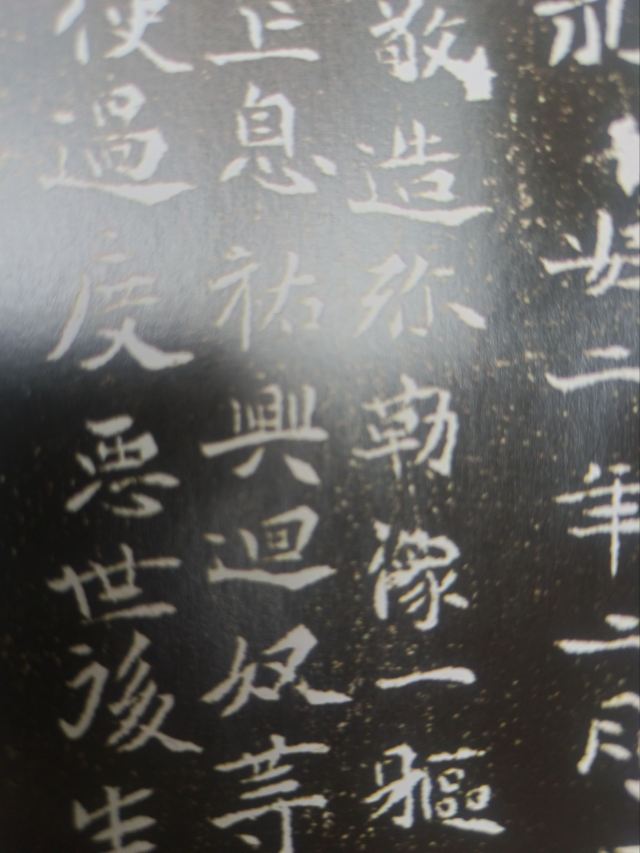 永安二年二月
敬造弥勒像一軀
亡息祐興迴奴等
使過度惡世後生